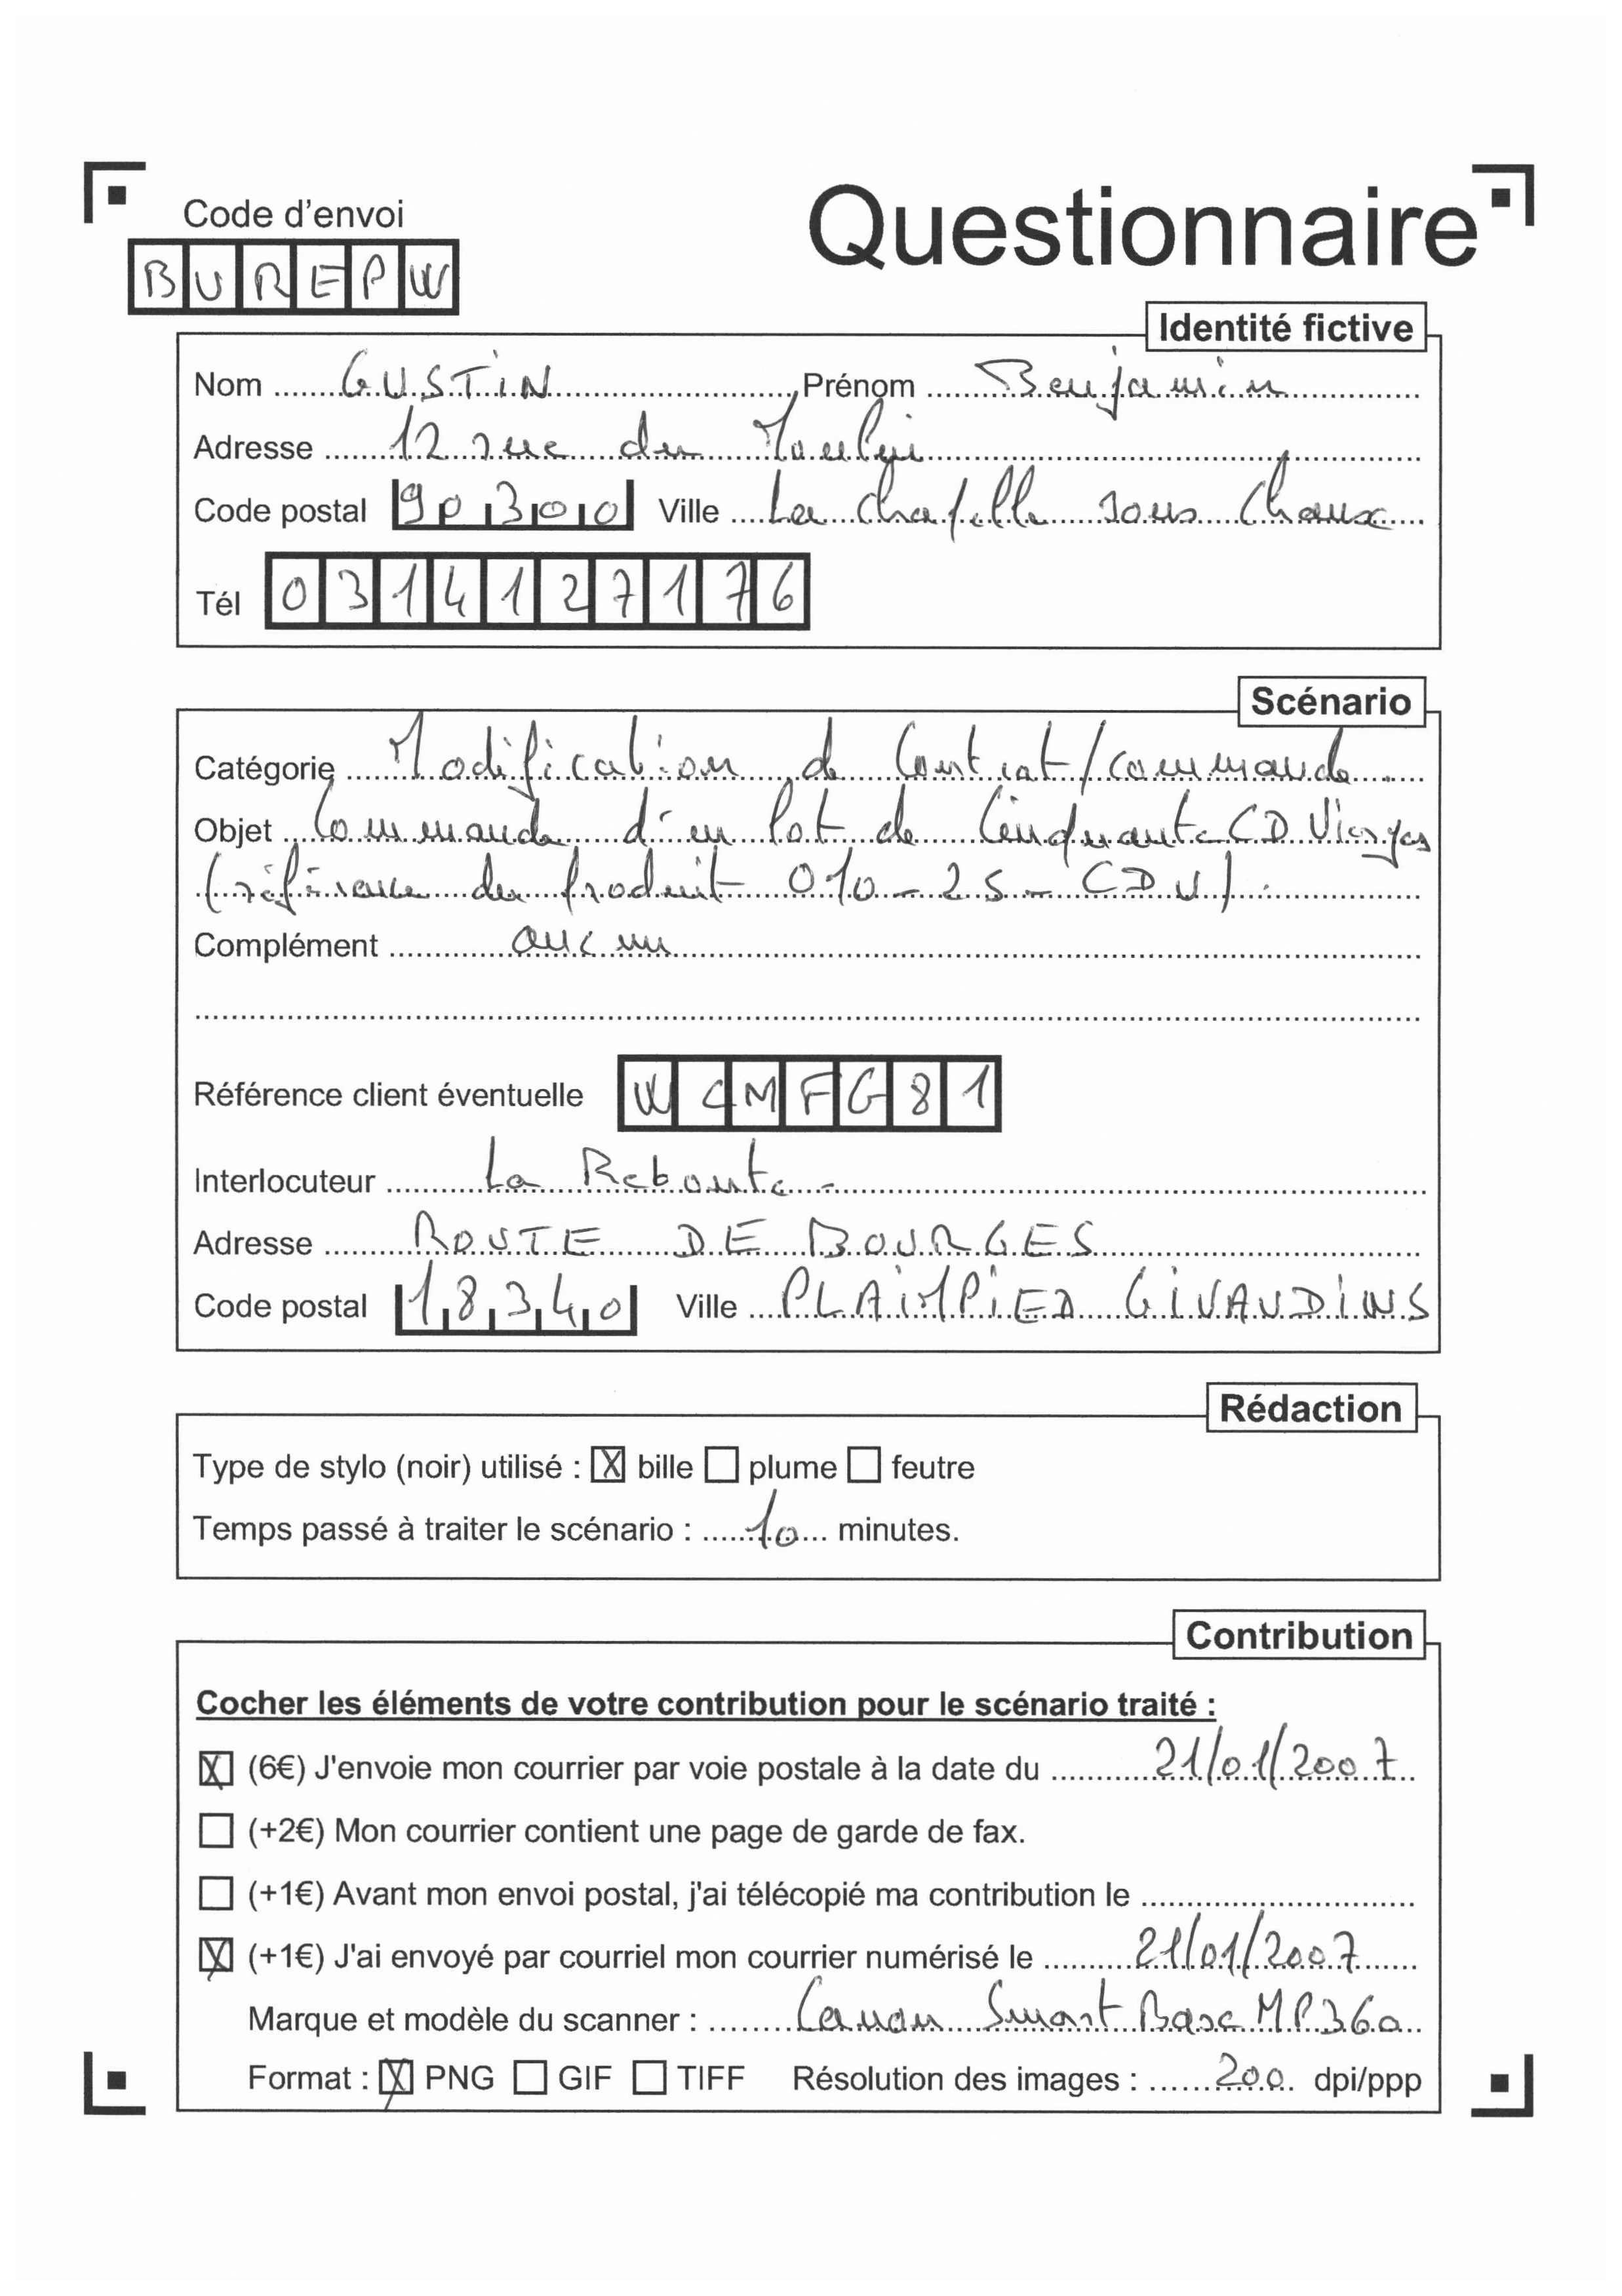 Code d'envoi
BUREPW
Questionnaire
Identité fictive
Nom GUSTIN Prénom Benjamin
Adresse 12 rue du Moulin
Code postal 90300 Ville La Chapelle sous Chaux
Tél 0314127176
Scénario
Catégorie Modification de Contrat/commande.
Objet Commande d'un lot de Cinquante CD Vierges
(référence du produit 010-25-CDV).
Complément aucun
Référence client éventuelle WCMFG81
Interlocuteur La Redoute
Adresse ROUTE DE BOURGES
Code postal 18340 Ville PLAIMPIED GIVAUDINS
Rédaction
Type de stylo (noir) utilisé : ☒ bille ☐ plume ☐ feutre
Temps passé à traiter le scénario : 10 minutes.
Contribution
Cocher les éléments de votre contribution pour le scénario traité :
☒ (6€) J'envoie mon courrier par voie postale à la date du 21/01/2007
☐ (+2€) Mon courrier contient une page de garde de fax.
☐ (+1€) Avant mon envoi postal, j'ai télécopié ma contribution le
☒ (+1€) J'ai envoyé par courriel mon courrier numérisé le 21/01/2007
Marque et modèle du scanner : Canon Smart Base MP360
Format : ☒ PNG ☐ GIF ☐ TIFF Résolution des images : 200 dpi/ppp